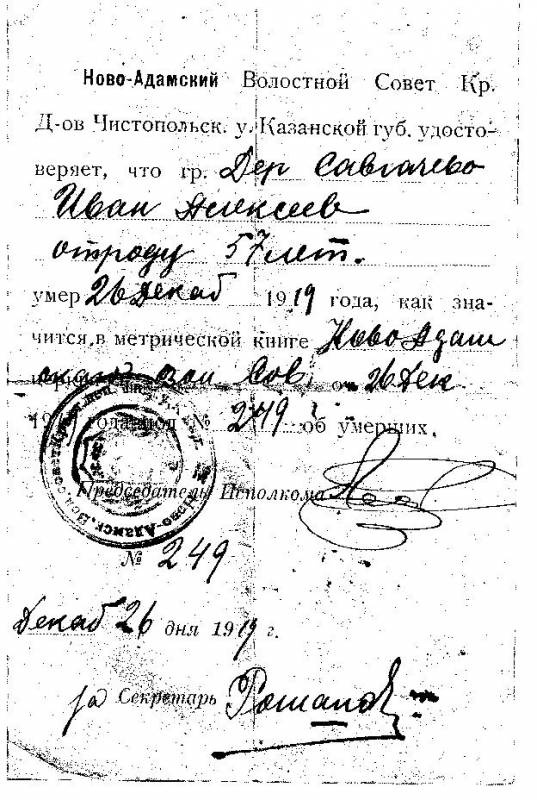 Ново-Адамский Волостной Совет Кр.
Д-ов Чистопольск. у. Казанской губ. удосто-
веряет, что гр. Дер Савгачево
Иван Алексеев
отроду 57 лет.
умер 26 Декаб 1919 года, как зна-
чится в метрической книге Ново Адам
ской Сов. от 26 Дек
19 года под № 249 об умерших.
Председатель Исполкома
№ 249
Декаб 26 дня 1919 г.
за Секретарь Романов